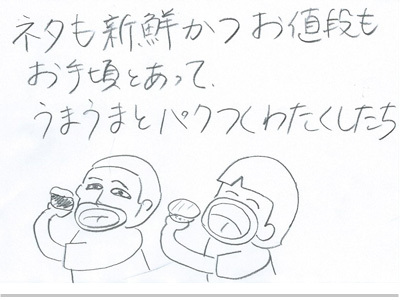 ネタも新鮮かつお値段も
お手頃とあって、
うまうまとパクつくわたくしたち